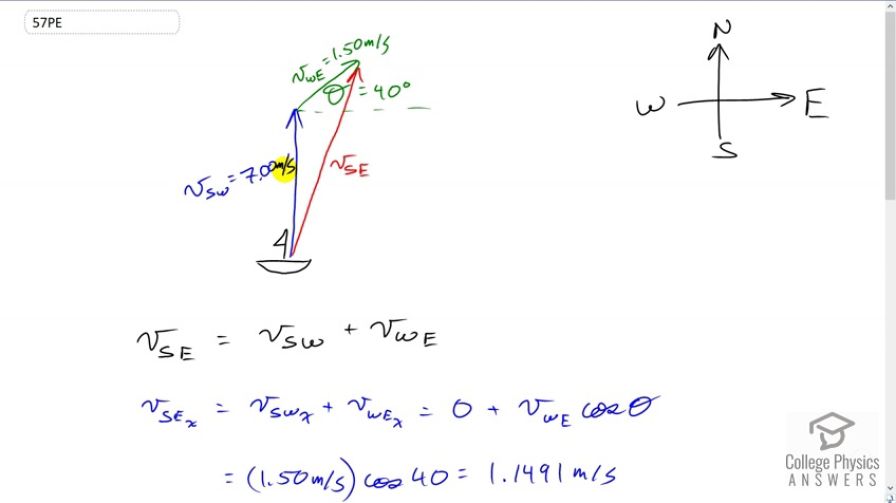 57PE
v_WE = 1.50 m/s
θ = 40°
v_SW = 7.00 m/s
v_SE
N
W E
S
v_SE = v_SW + v_WE
v_SEx = v_SWx + v_WEx = 0 + v_WE cos θ
= (1.50 m/s) cos 40 = 1.1491 m/s
College Physics
ANSWERS